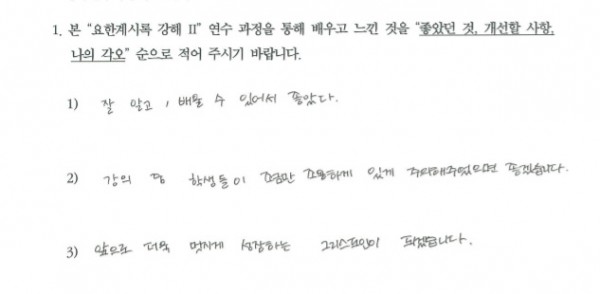 1. 본 “요한계시록 강해 II” 연수 과정을 통해 배우고 느낀 것을 “좋았던 것, 개선할 사항,
나의 각오” 순으로 적어 주시기 바랍니다.
1) 잘 알고, 배울 수 있어서 좋았다.
2) 강의 땅 학생들이 조금만 조용하게 있게 주의해주었으면 좋겠습니다.
3) 앞으로 더욱 멋지게 성장하는 그리스도인이 되겠습니다.